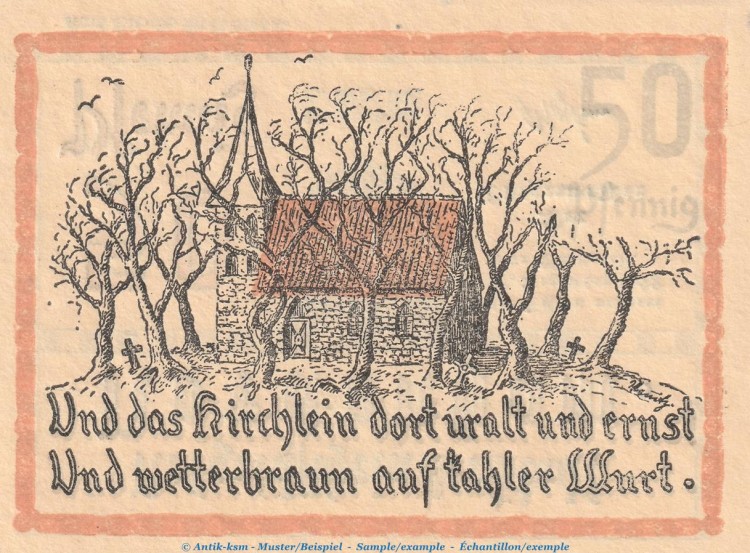 50
Pfennig
Und das Kirchlein dort uralt und ernst
Und wetterbraun auf kahler Wurt.
© Antik-ksm - Muster/Beispiel - Sample/example - Échantillon/exemple